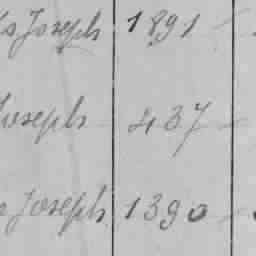 Joseph 1891
Joseph 437
Joseph 1390